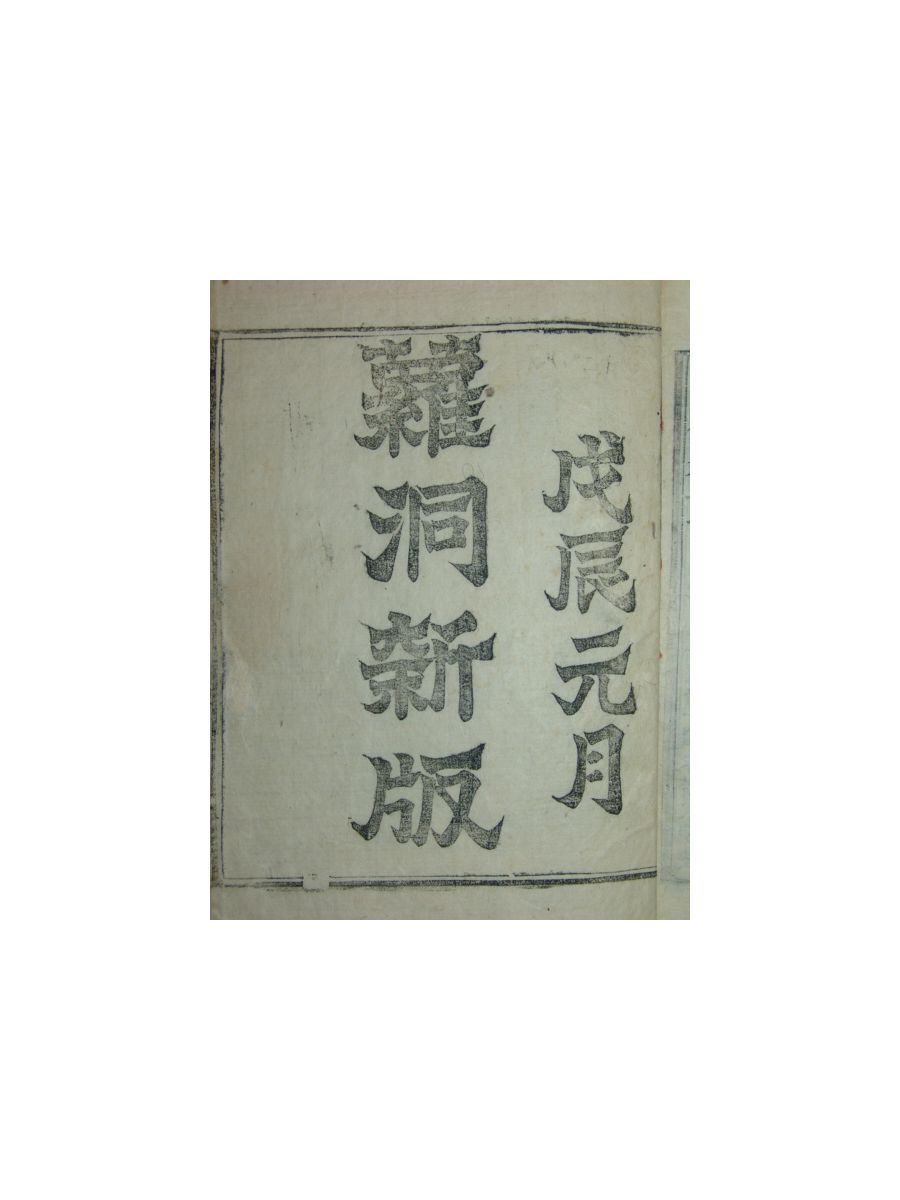 戊辰元月
洞新版